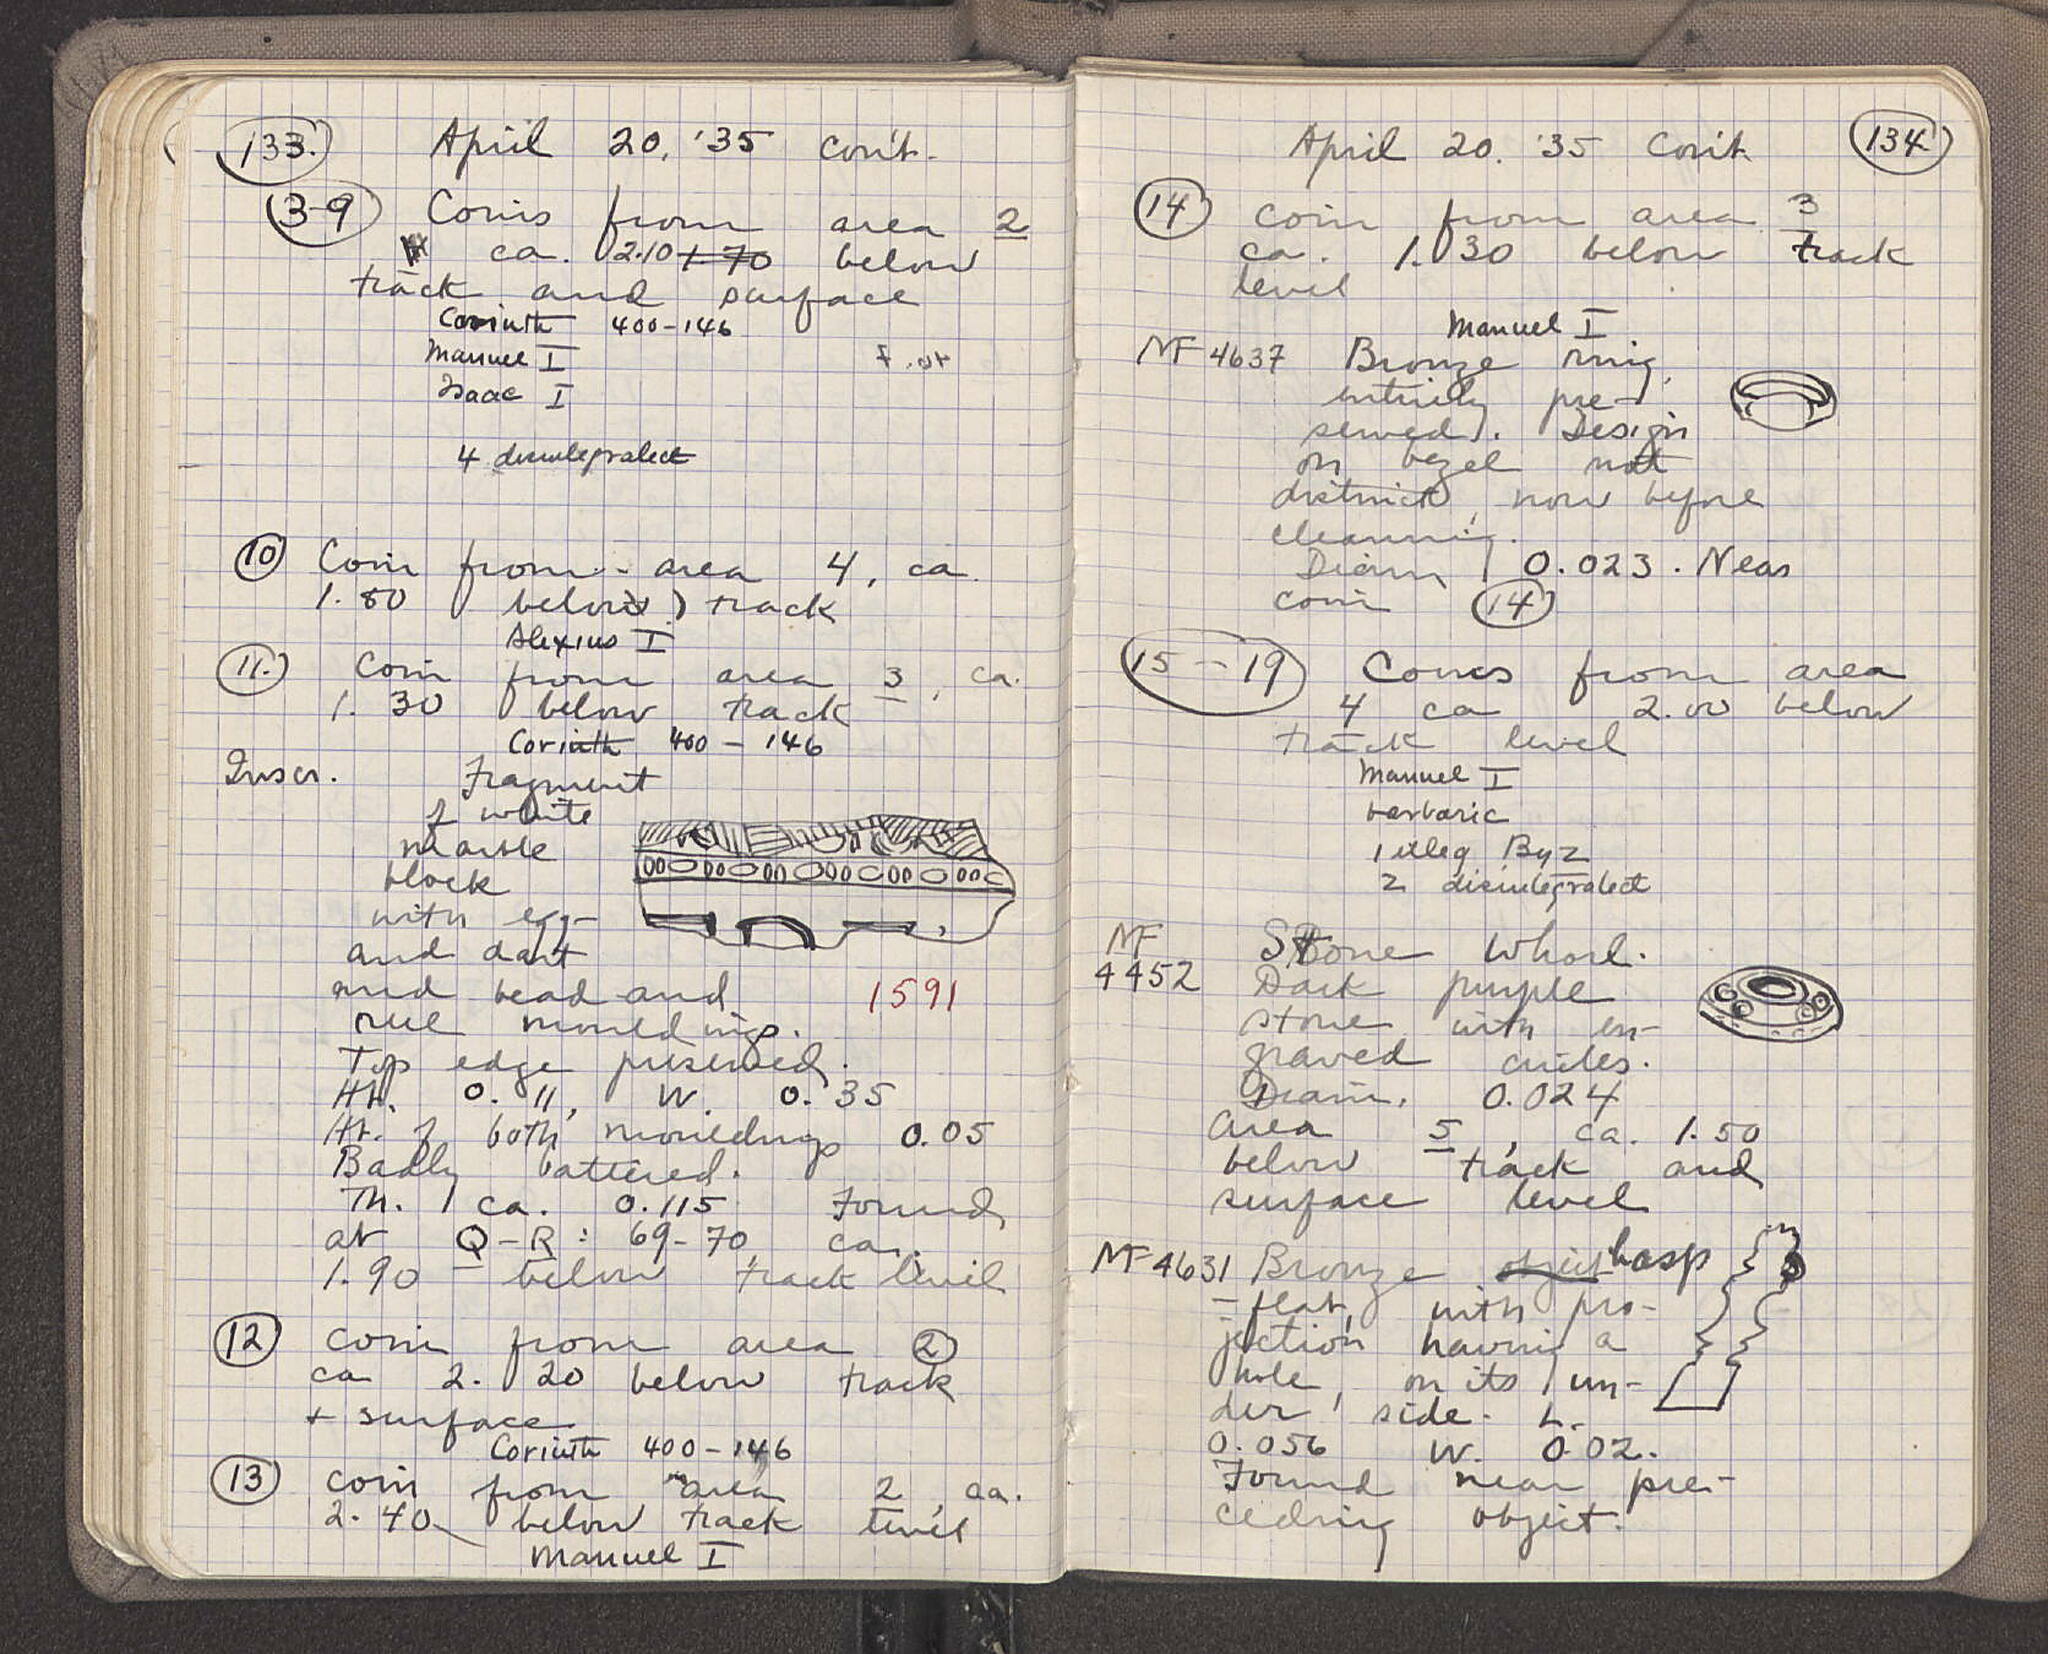 133. April 20, '35 con't.
3-9 Coins from area 2
ca. 2.10 1.70 below
track and surface
Corinth 400-146
Manuel I
Isaac I
4 disintegrated
10 Coin from area 4, ca.
1.80 below track
Alexius I
11. Coin from area 3, ca.
1.30 below track
Corinth 400-146
Inscr. Fragment
of white
marble
block
with egg-
and dart
and bead-and
reel mouldings.
1591
Top edge preserved.
Ht. 0.11, W. 0.35
Ht. of both mouldings 0.05
Badly battered.
Th. ca. 0.115 Found
at Q-R: 69-70 ca.
1.90 below track level
12 coin from area 2
ca 2.20 below track
+ surface
Corinth 400-146
13 coin from area 2, ca.
2.40 below track level
Manuel I
April 20. '35 Con't. 134
14 coin from area 3
ca. 1.30 below track
level
Manuel I
MF 4637 Bronze ring,
entirely pre-
served. Design
on bezel not
distinct, now before
cleaning.
Diam. 0.023. Near
coin 14
15-19 Coins from area
4 ca 2.00 below
track level
Manuel I
barbaric
1 illeg Byz
2 disintegrated
MF
4452
Stone whorl.
Dark purple
stone with en-
graved circles.
Diam. 0.024
Area 5, ca. 1.50
below track and
surface level
MF 4631 Bronze object hasp
- flat, with pro-
jection having a
hole, on its un-
der side. L.
0.056 W. 0.02.
Found near pre-
ceding object.